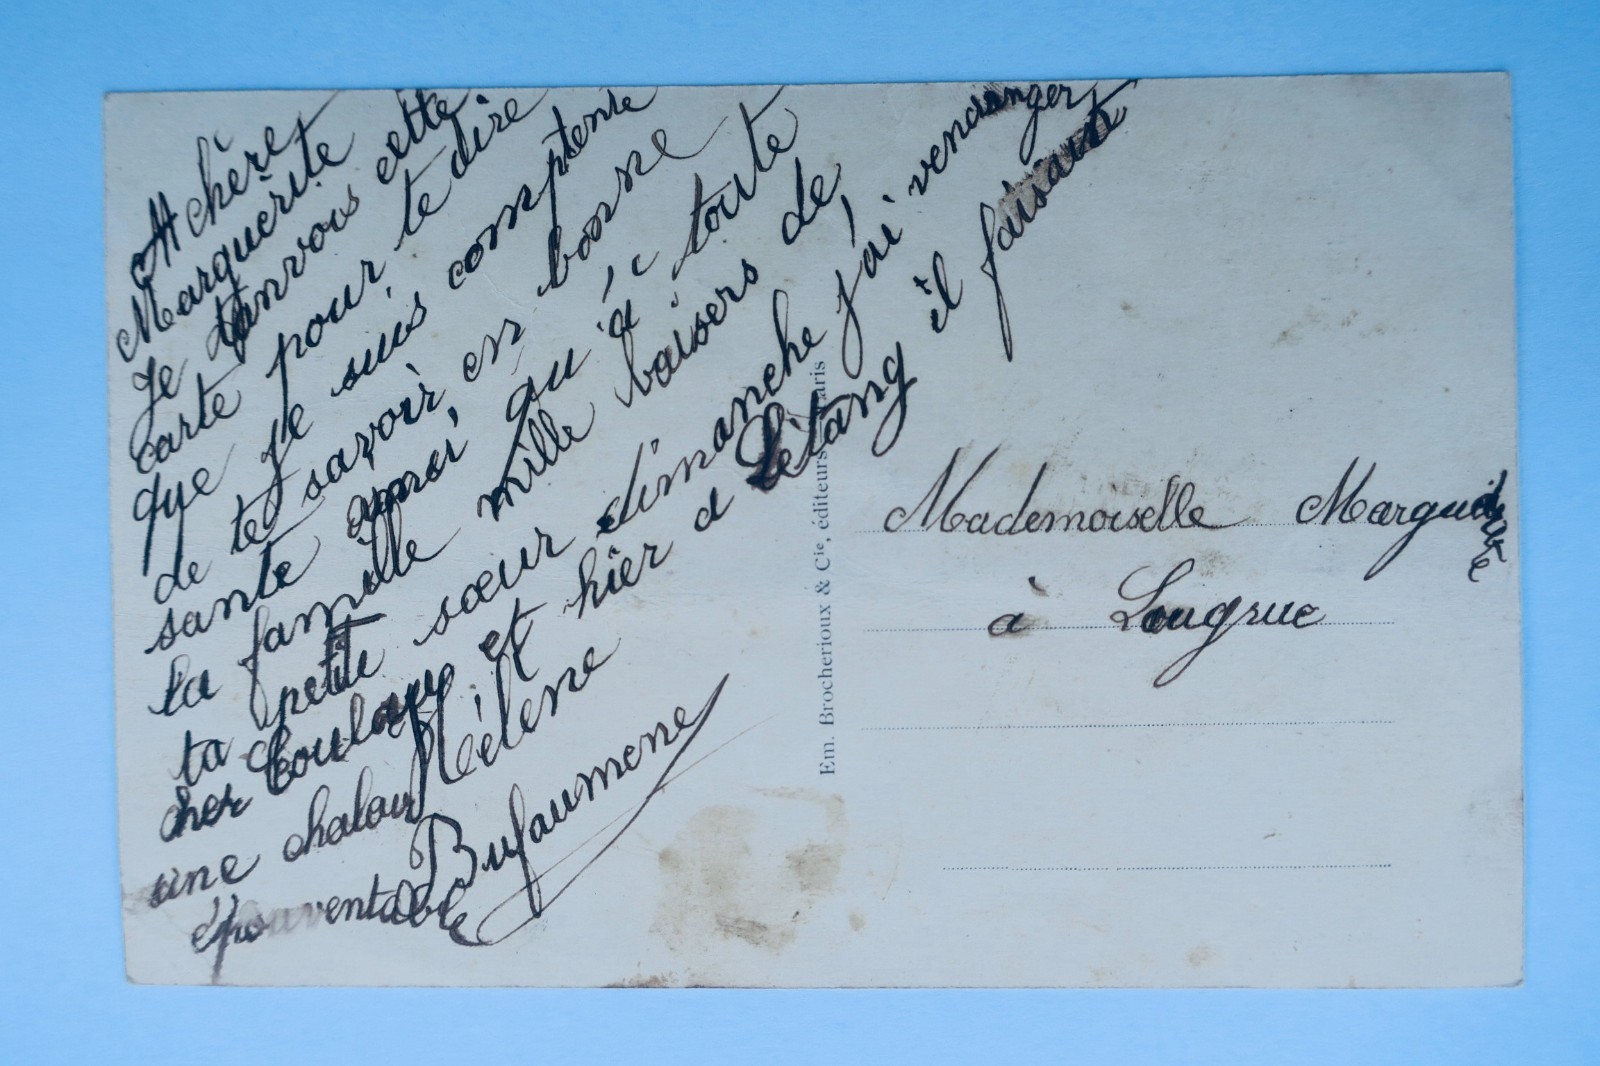 chère
Marguerite
Je t'anvois cette
carte pour te dire
que je suis comptente
de te savoir en bonne
santé ainsi qu'à toute
ta famille mille baisers de
ta petite sœur dimanche j'ai vendanger
cher et hier a Létang il faisait
une chaleur Hélène
épouventable Bufaumene
Em. Brocherioux & Cie, éditeurs Paris
Mademoiselle Marguerite
à Lougrue